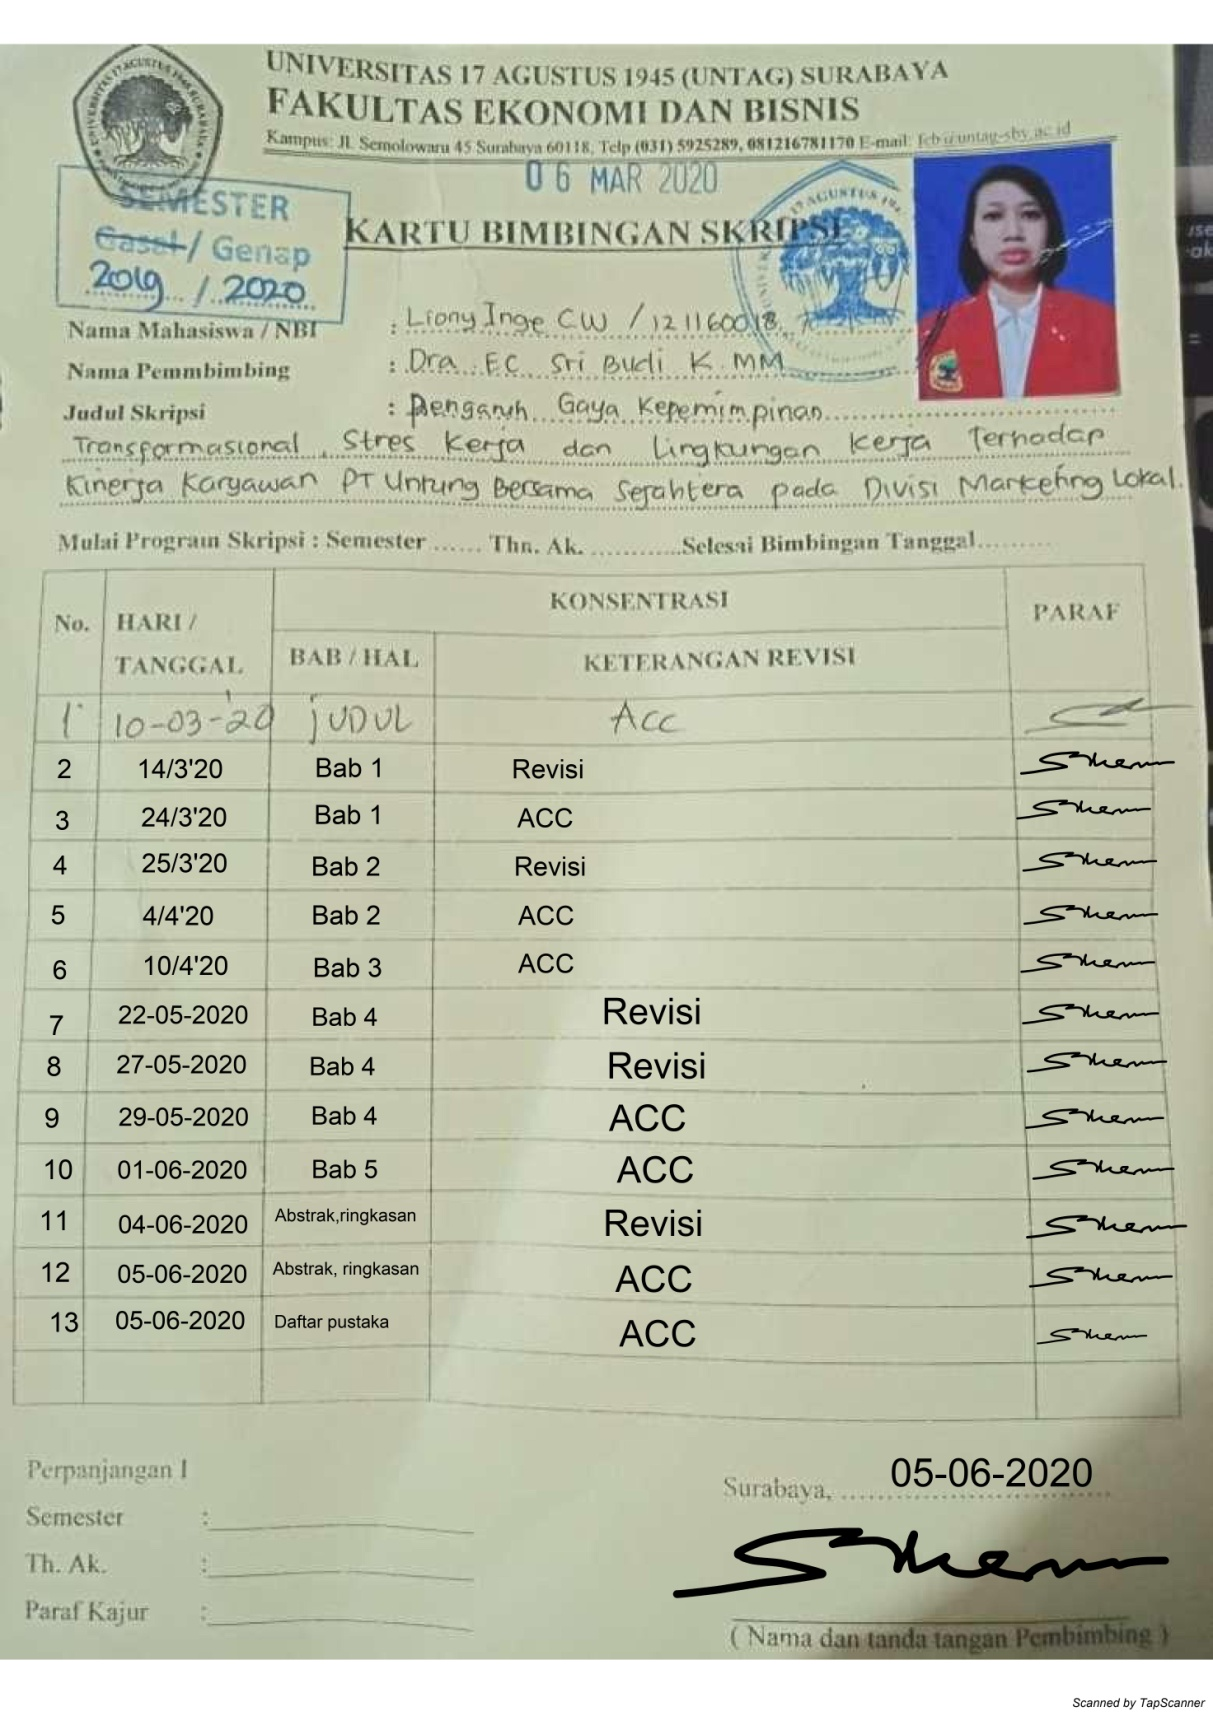 UNIVERSITAS 17 AGUSTUS 1945 (UNTAG) SURABAYA
FAKULTAS EKONOMI DAN BISNIS
Kampus: Jl. Semolowaru 45 Surabaya 60118, Telp (031) 5925289, 081216781170 E-mail: feb@untag-sby.ac.id
06 MAR 2020
SEMESTER
Gasal / Genap
2019 / 2020
KARTU BIMBINGAN SKRIPSI
Nama Mahasiswa / NBI : Liony Inge CW / 121160018
Nama Pemmbimbing : Dra. EC Sri Budi K. MM
Judul Skripsi : Pengaruh Gaya Kepemimpinan
Transformasional, Stres Kerja dan Lingkungan Kerja Terhadap
Kinerja Karyawan PT Untung Bersama Sejahtera pada Divisi Marketing Lokal.
Mulai Program Skripsi : Semester ...... Thn. Ak. ............Selesai Bimbingan Tanggal..........
No. HARI / TANGGAL KONSENTRASI PARAF
BAB / HAL KETERANGAN REVISI
1 10-03-'20 JUDUL Acc
2 14/3'20 Bab 1 Revisi
3 24/3'20 Bab 1 ACC
4 25/3'20 Bab 2 Revisi
5 4/4'20 Bab 2 ACC
6 10/4'20 Bab 3 ACC
7 22-05-2020 Bab 4 Revisi
8 27-05-2020 Bab 4 Revisi
9 29-05-2020 Bab 4 ACC
10 01-06-2020 Bab 5 ACC
11 04-06-2020 Abstrak,ringkasan Revisi
12 05-06-2020 Abstrak, ringkasan ACC
13 05-06-2020 Daftar pustaka ACC
Perpanjangan I
Surabaya, 05-06-2020
Semester :
Th. Ak. :
Paraf Kajur :
( Nama dan tanda tangan Pembimbing )
Scanned by TapScanner